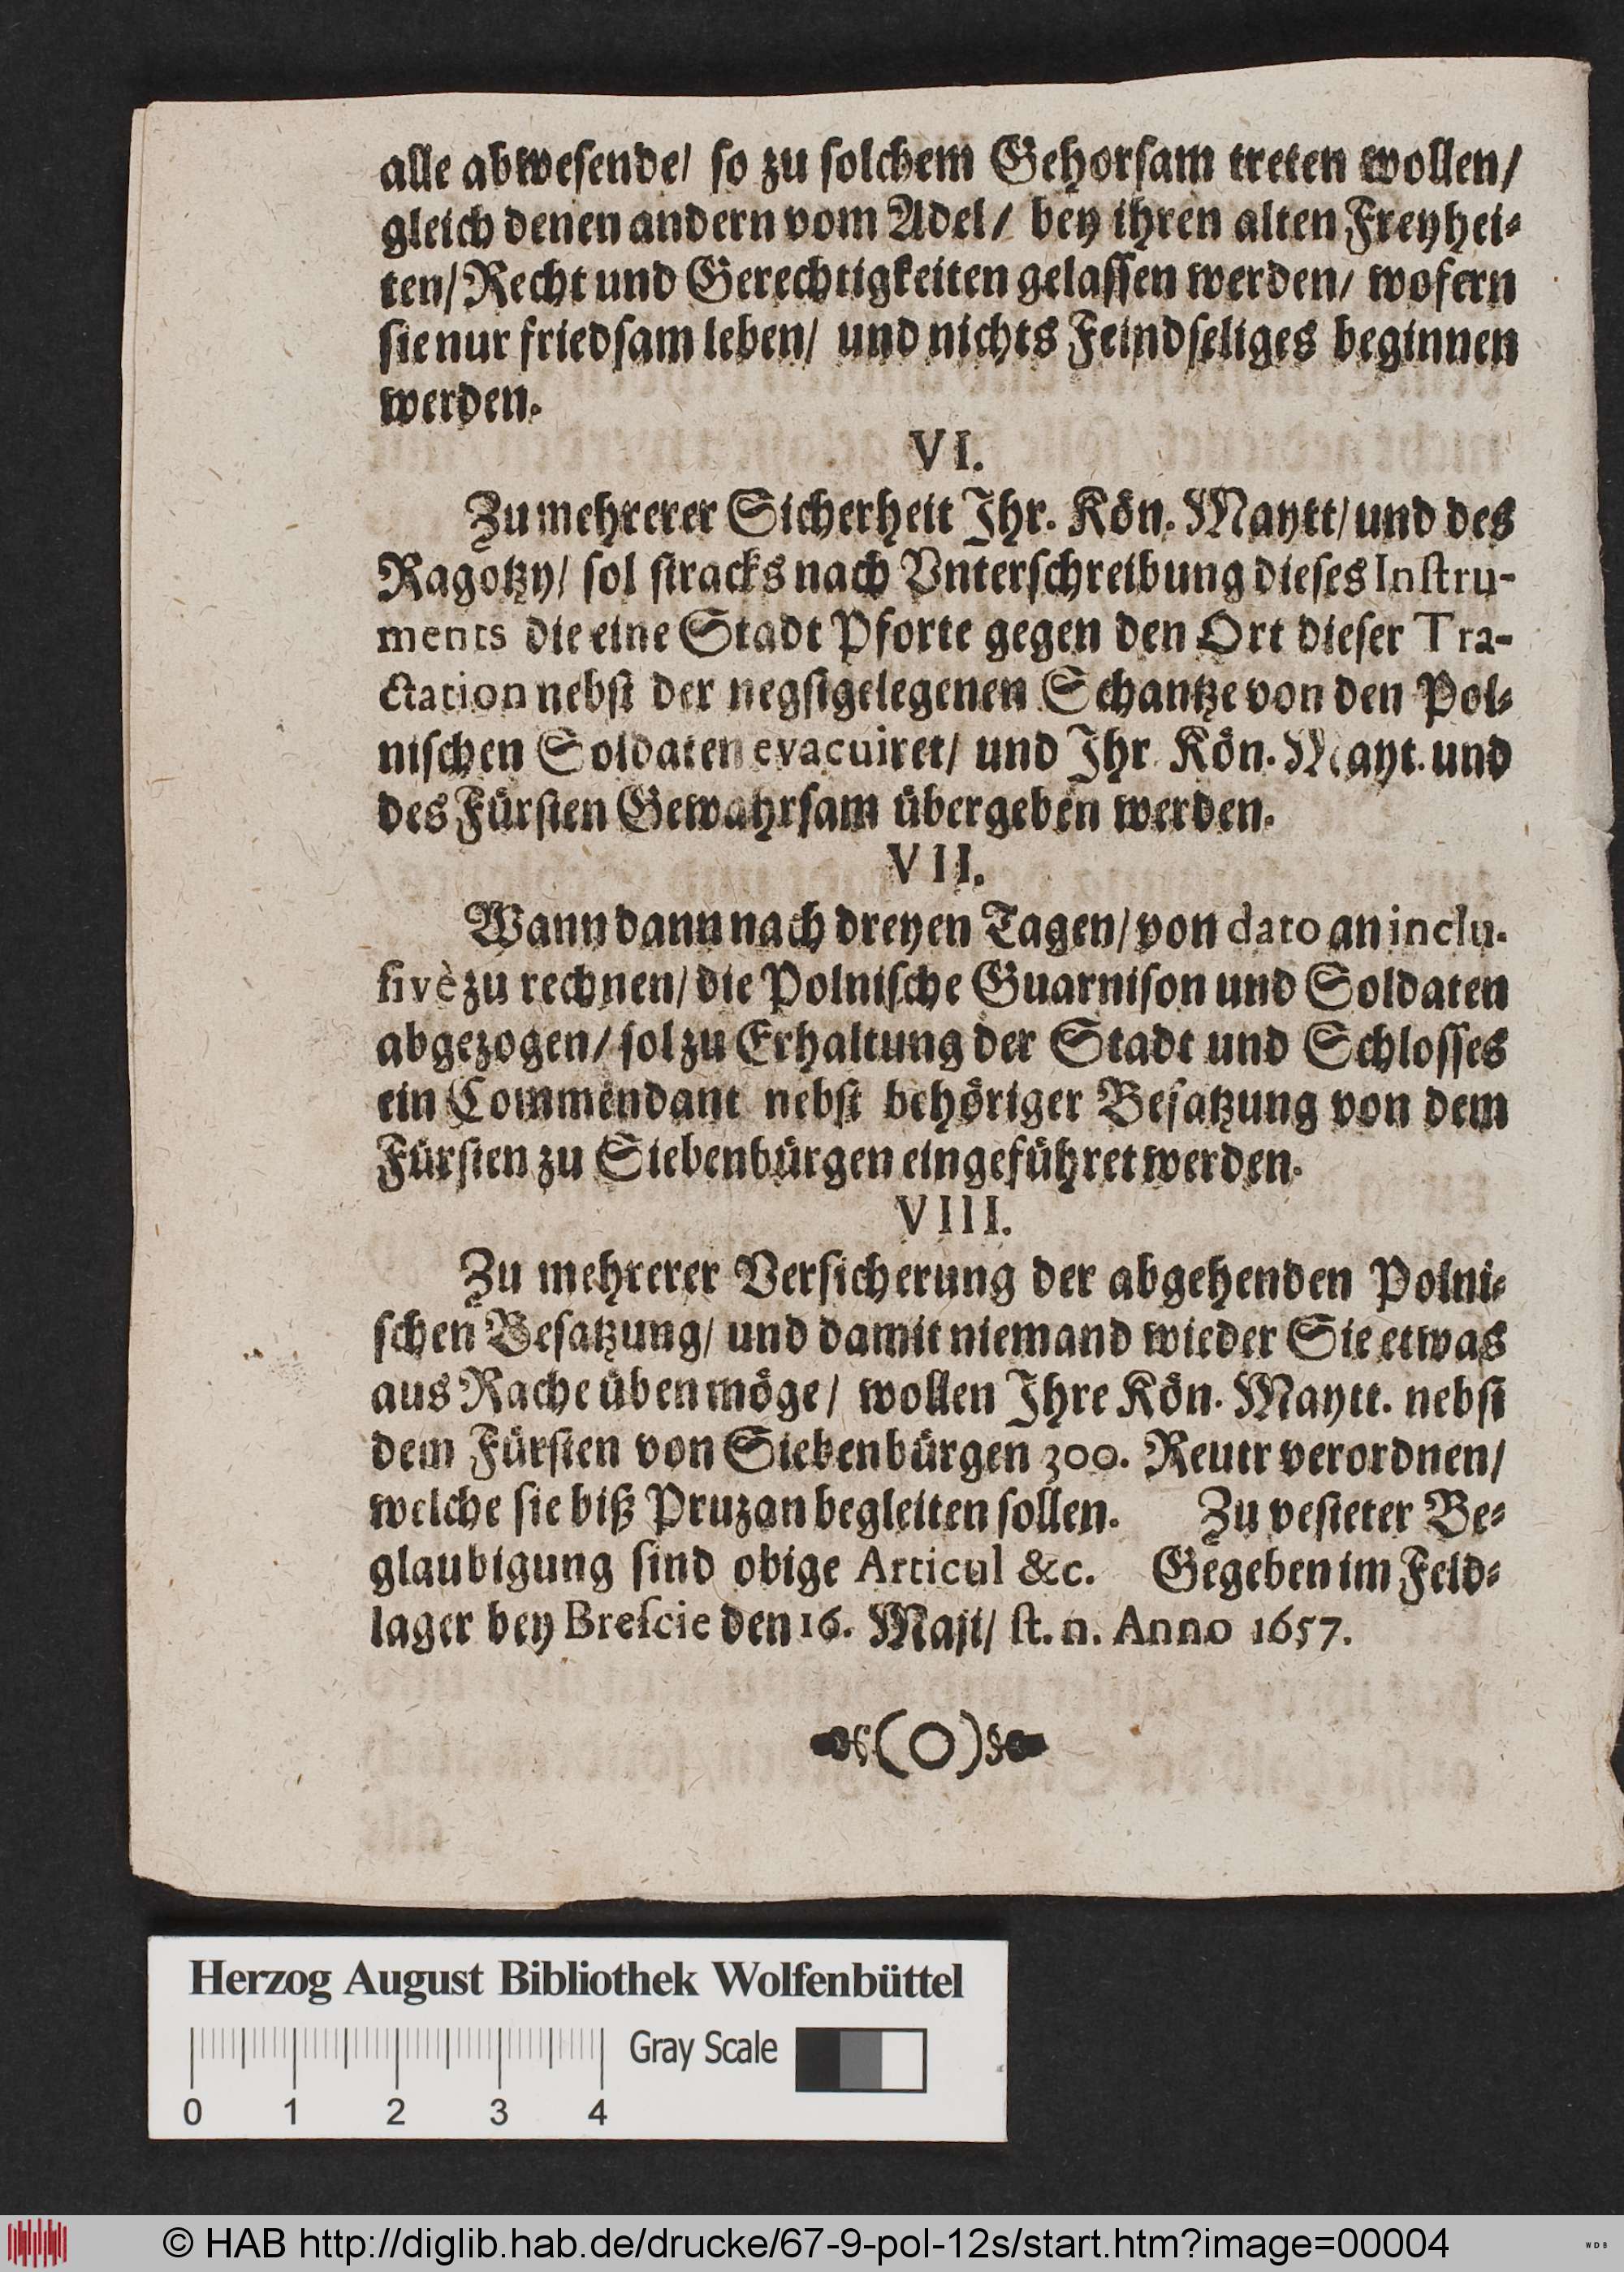 alle abweſende/ ſo zu ſolchem Gehorſam treten wollen/
gleich denen andern vom Adel/ bey ihren alten Freyhei⸗
ten/ Recht und Gerechtigkeiten gelaſſen werden/ wofern
ſie nur friedſam leben/ und nichts Feindſeliges beginnen
werden.
VI.
Zu mehrerer Sicherheit Ihr. Kön. Maytt/ und des
Ragotzy/ ſol ſtracks nach Vnterſchreibung dieſes Inſtru-
ments die eine Stadt Pforte gegen den Ort dieſer Tra-
ctation nebſt der negſtgelegenen Schantze von den Pol⸗
niſchen Soldaten evacuiret/ und Ihr Kön. Mayt. und
des Fürſten Gewahrſam übergeben werden.
VII.
Wann dann nach dreyen Tagen/ von dato an inclu-
ſivè zu rechnen/ die Polniſche Guarniſon und Soldaten
abgezogen/ ſol zu Erhaltung der Stadt und Schloſſes
ein Commendant nebſt behöriger Beſatzung von dem
Fürſten zu Siebenbürgen eingeführet werden.
VIII.
Zu mehrerer Verſicherung der abgehenden Polni⸗
ſchen Beſatzung/ und damit niemand wieder Sie etwas
aus Rache üben möge/ wollen Ihre Kön. Maytt. nebſt
dem Fürſten von Siebenbürgen 300. Reutr verordnen/
welche ſie biß Pruzan begleiten ſollen. Zu veſteter Be⸗
glaubigung ſind obige Articul &c. Gegeben im Feld⸗
lager bey Breſcie den 16. Maji/ ſt. n. Anno 1657.
Herzog August Bibliothek Wolfenbüttel
Gray Scale
0 1 2 3 4
© HAB http://diglib.hab.de/drucke/67-9-pol-12s/start.htm?image=00004
WDB